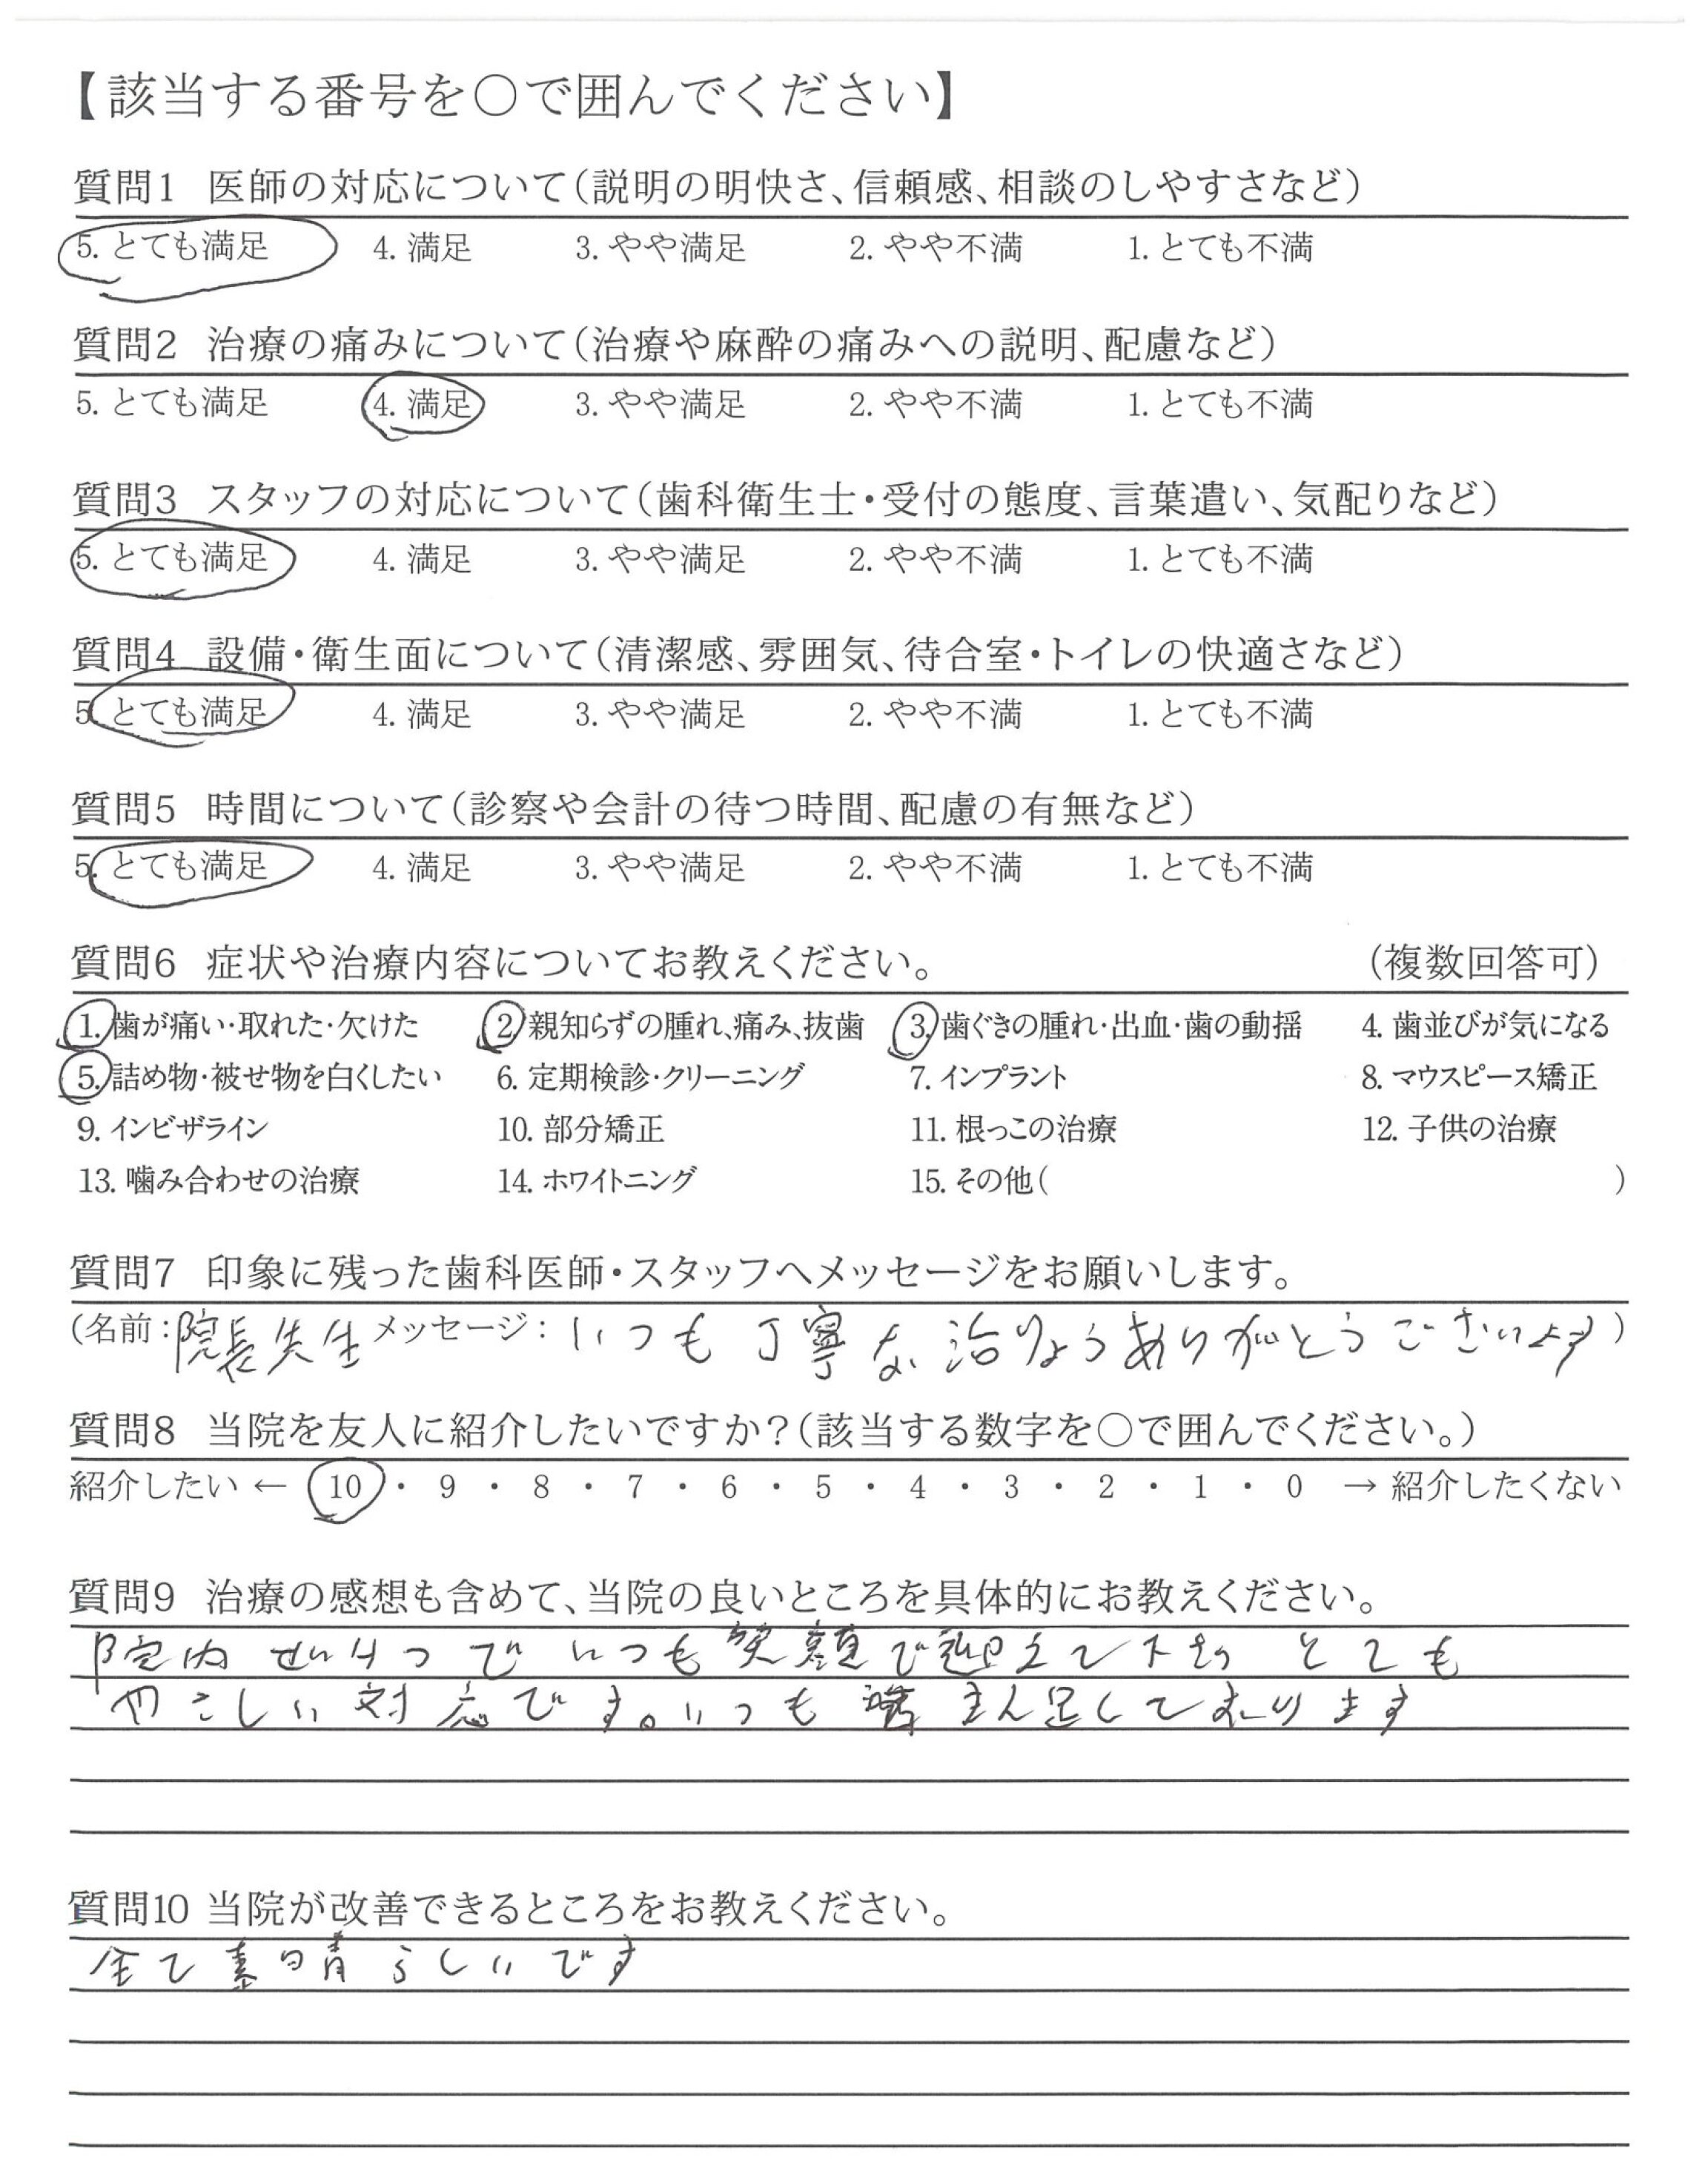 【該当する番号を○で囲んでください】
質問1 医師の対応について（説明の明快さ、信頼感、相談のしやすさなど）
5. とても満足 4. 満足 3. やや満足 2. やや不満 1. とても不満
質問2 治療の痛みについて（治療や麻酔の痛みへの説明、配慮など）
5. とても満足 4. 満足 3. やや満足 2. やや不満 1. とても不満
質問3 スタッフの対応について（歯科衛生士・受付の態度、言葉遣い、気配りなど）
5. とても満足 4. 満足 3. やや満足 2. やや不満 1. とても不満
質問4 設備・衛生面について（清潔感、雰囲気、待合室・トイレの快適さなど）
5. とても満足 4. 満足 3. やや満足 2. やや不満 1. とても不満
質問5 時間について（診察や会計の待つ時間、配慮の有無など）
5. とても満足 4. 満足 3. やや満足 2. やや不満 1. とても不満
質問6 症状や治療内容についてお教えください。 （複数回答可）
1. 歯が痛い・取れた・欠けた 2. 親知らずの腫れ、痛み、抜歯 3. 歯ぐきの腫れ・出血・歯の動揺 4. 歯並びが気になる
5. 詰め物・被せ物を白くしたい 6. 定期検診・クリーニング 7. インプラント 8. マウスピース矯正
9. インビザライン 10. 部分矯正 11. 根っこの治療 12. 子供の治療
13. 噛み合わせの治療 14. ホワイトニング 15. その他（ ）
質問7 印象に残った歯科医師・スタッフへメッセージをお願いします。
（名前：院長先生 メッセージ：いつも丁寧な治りょうありがとうございます）
質問8 当院を友人に紹介したいですか？（該当する数字を○で囲んでください。）
紹介したい ← 10 ・ 9 ・ 8 ・ 7 ・ 6 ・ 5 ・ 4 ・ 3 ・ 2 ・ 1 ・ 0 → 紹介したくない
質問9 治療の感想も含めて、当院の良いところを具体的にお教えください。
院内せいけつでいつも笑顔で迎えて下さり とても
やさしい対応です。いつも まん足しております
質問10 当院が改善できるところをお教えください。
全て素晴らしいです